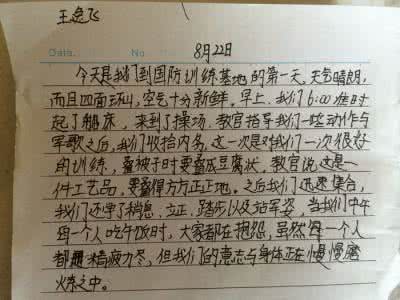 王逸飞
Date. No.
8月22日
今天是我们到国防训练基地的第一天,天气晴朗,
而且四面环山,空气十分新鲜。早上,我们6:00准时
起了床,来到了操场,教官指导我们一些动作与
军歌之后,我们收拾内务,这一次是对我们一次很好
的训练,叠被子时要叠成豆腐状,教官说这是一
件工艺品,要叠得方方正正地。之后我们迅速集合,
我们还学了稍息、立正、踏步以及站军姿,当我们中午
每一个人吃午饭时,大家都在抱怨,虽然每一个人
都精疲力尽,但我们的意志与身体正在慢慢磨
炼之中。